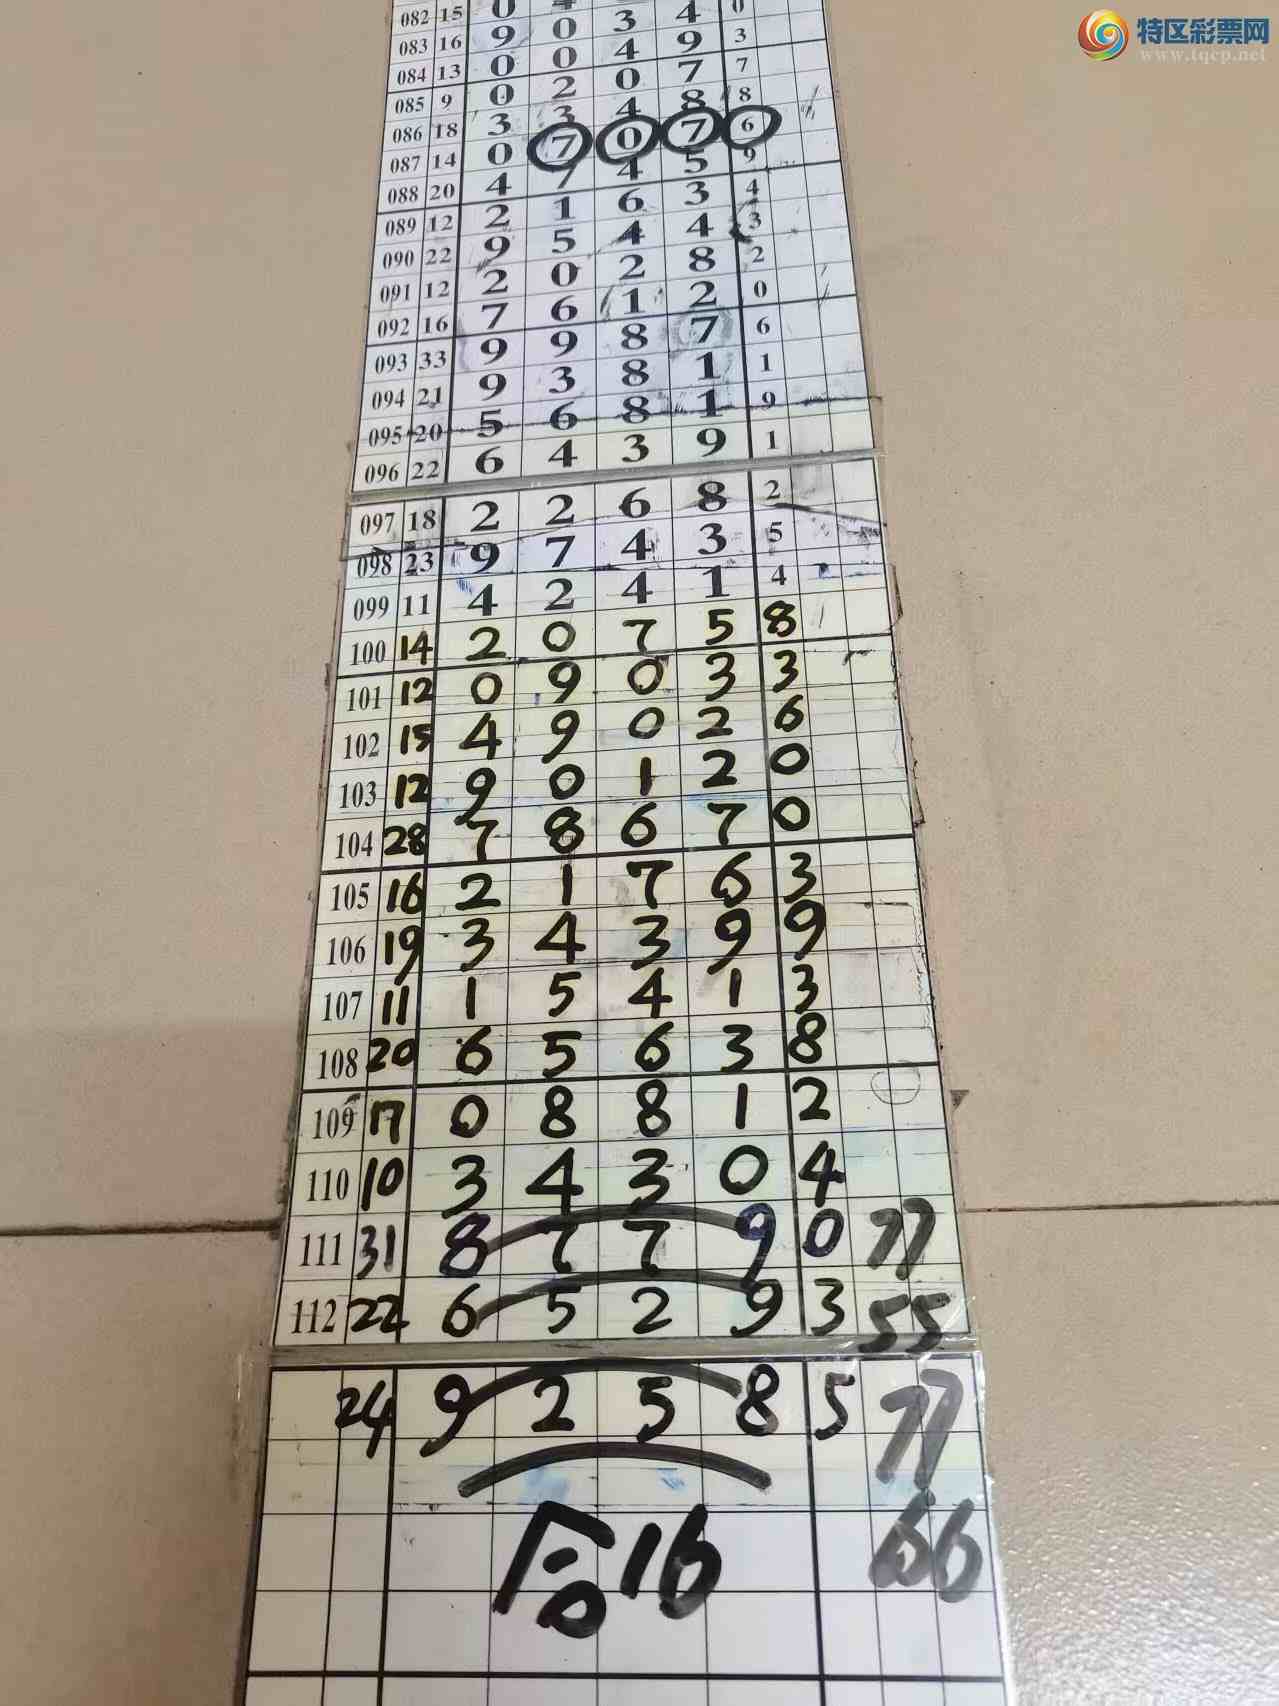 特区彩票网
www.tqcp.net
082 15 0
083 16 9 0 3 4 0
084 13 0 0 4 9 3
085 9 0 2 0 7 7
086 18 3 3 4 8 8
087 14 0 7 0 7 6
088 20 4 7 4 5 9
089 12 2 1 6 3 4
090 22 9 5 4 4 3
091 12 2 0 2 8 2
092 16 7 6 1 2 0
093 33 9 9 8 7 6
094 21 9 3 8 1 1
095 20 5 6 8 1 9
096 22 6 4 3 9 1
097 18 2 2 6 8 2
098 23 9 7 4 3 5
099 11 4 2 4 1 4
100 14 2 0 7 5 8
101 12 0 9 0 3 3
102 15 4 9 0 2 6
103 12 9 0 1 2 0
104 28 7 8 6 7 0
105 16 2 1 7 6 3
106 19 3 4 3 9 9
107 11 1 5 4 1 3
108 20 6 5 6 3 8
109 17 0 8 8 1 2
110 10 3 4 3 0 4
111 31 8 7 7 9 0 77
112 22 6 5 2 9 3 55
24 9 2 5 8 5 77
合16 66